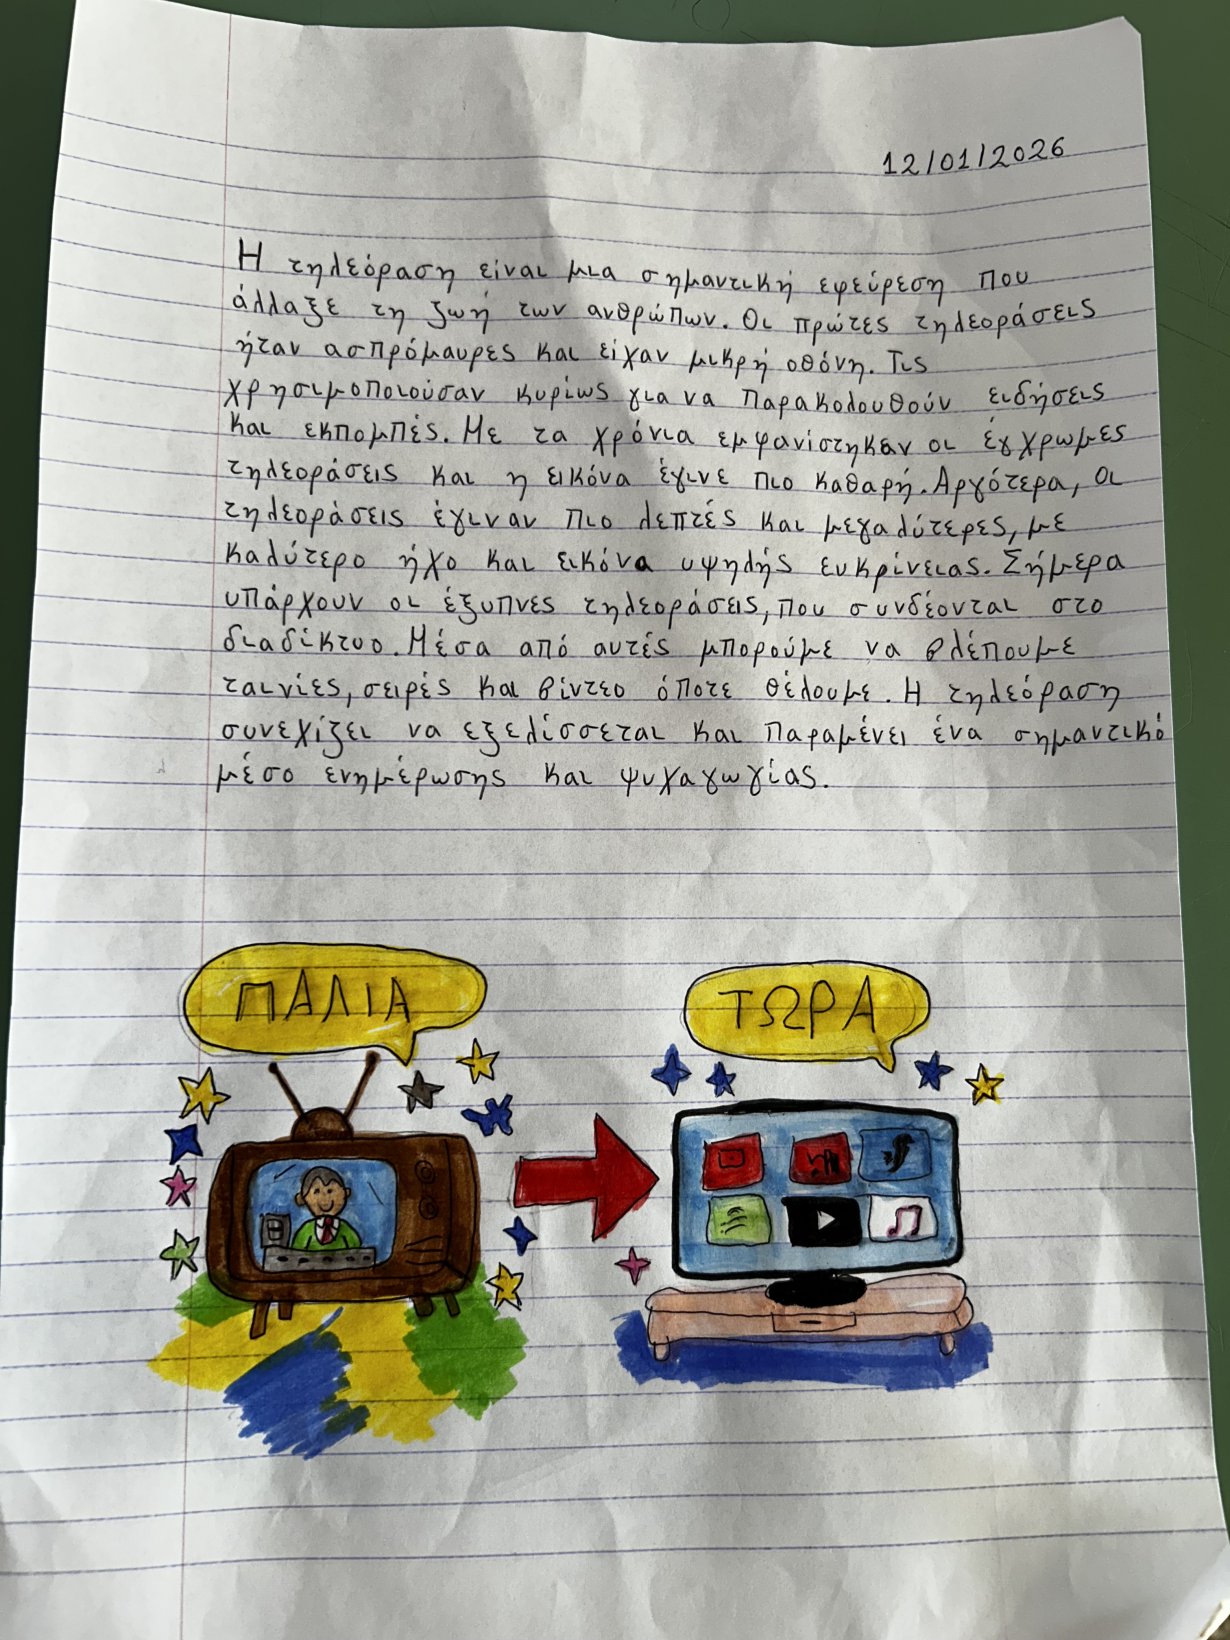 12/01/2026
Η τηλεόραση είναι μια σημαντική εφεύρεση που
άλλαξε τη ζωή των ανθρώπων. Οι πρώτες τηλεοράσεις
ήταν ασπρόμαυρες και είχαν μικρή οθόνη. Τις
χρησιμοποιούσαν κυρίως για να παρακολουθούν ειδήσεις
και εκπομπές. Με τα χρόνια εμφανίστηκαν οι έγχρωμες
τηλεοράσεις και η εικόνα έγινε πιο καθαρή. Αργότερα, οι
τηλεοράσεις έγιναν πιο λεπτές και μεγαλύτερες, με
καλύτερο ήχο και εικόνα υψηλής ευκρίνειας. Σήμερα
υπάρχουν οι έξυπνες τηλεοράσεις, που συνδέονται στο
διαδίκτυο. Μέσα από αυτές μπορούμε να βλέπουμε
ταινίες, σειρές και βίντεο όποτε θέλουμε. Η τηλεόραση
συνεχίζει να εξελίσσεται και παραμένει ένα σημαντικό
μέσο ενημέρωσης και ψυχαγωγίας.
ΠΑΛΙΑ
ΤΩΡΑ